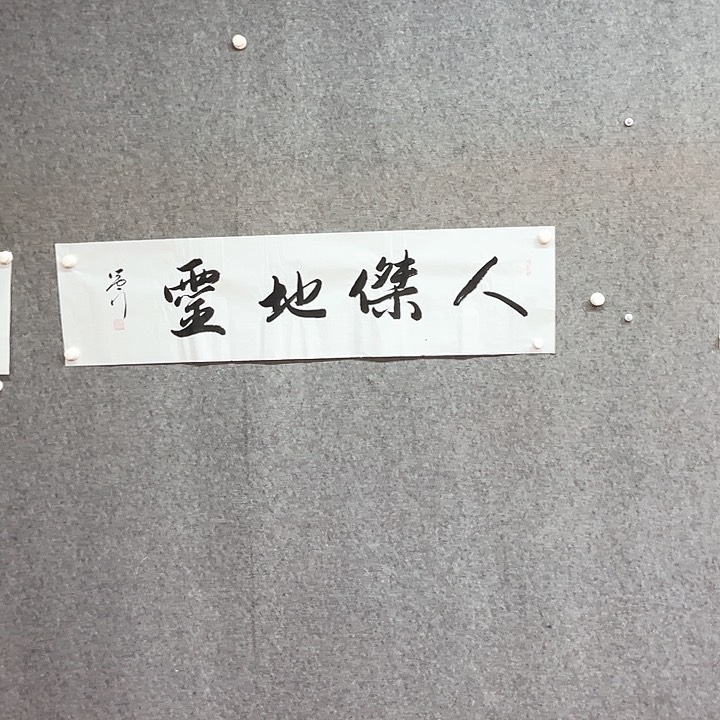 人傑地靈